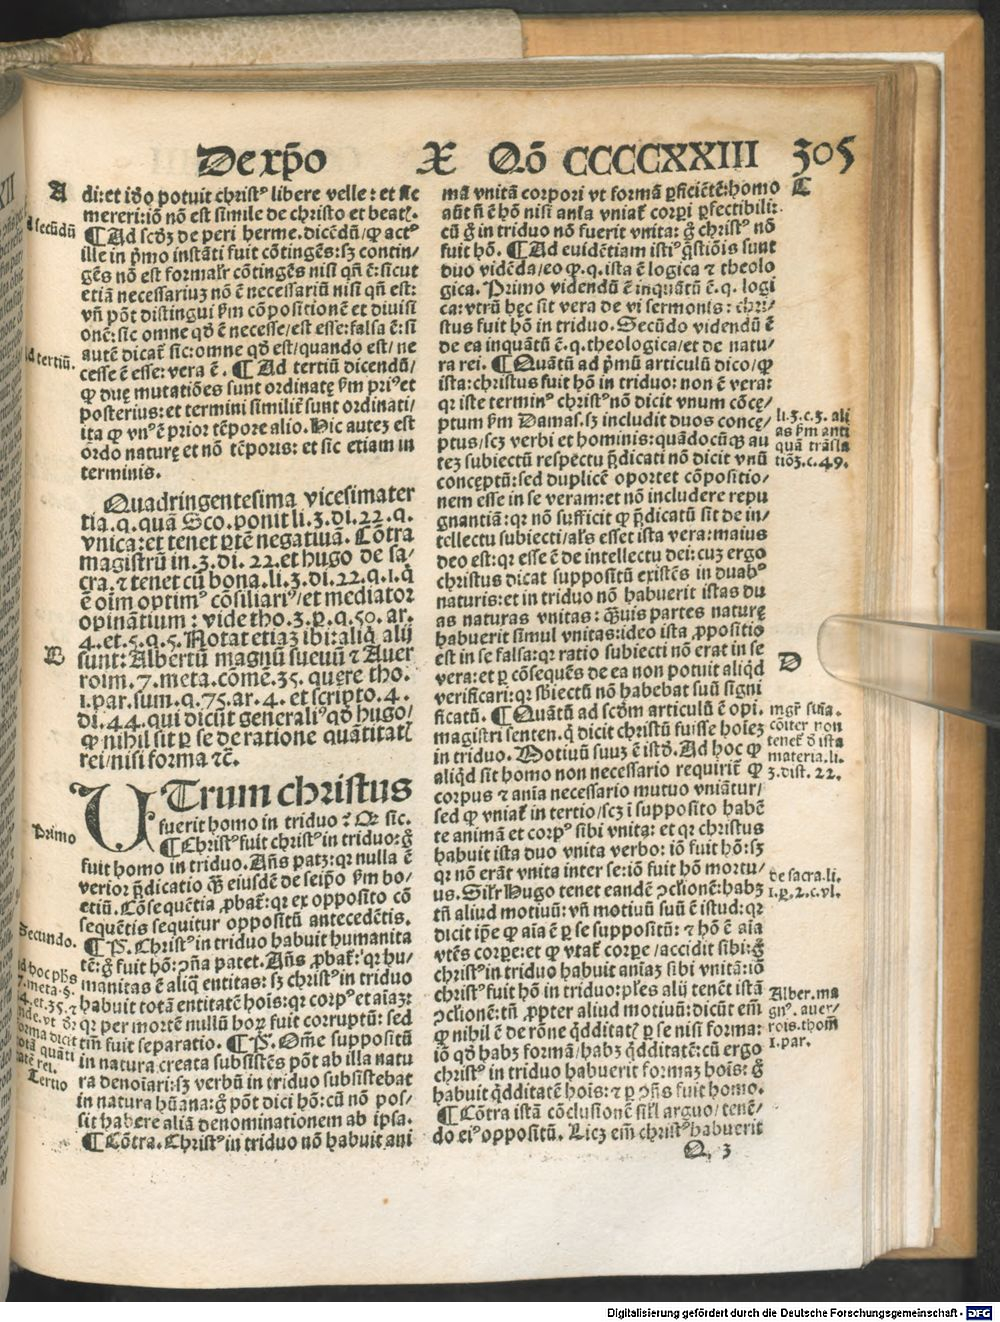 De xp̄o X Qō CCCCCXXIII 305
A
di: et iđo potuit christꝰ libere velle: et sic
mereri: iō nō est simile de christo et beatꝭ.
d secūdū
¶ Ad scđꝫ de peri herme. dicēdū, ꝙ actꝰ
ille in pͥmo instāti fuit cōtingēs: sꝫ contin⸗
gēs nō est formalr̄ cōtingēs nisi qn̄ ē: sicut
etiā necessariuꝫ nō ē necessariū nisi qn̄ est:
vn̄ pōt distingui ẜm cōpositionē et diuisi
onē: sic omne qđ ē necesse/est esse: falsa ē: si
autē dicat̄ sic: omne qđ est/quando est/ne
d tertiū.
cesse ē esse: vera ē. ¶ Ad tertiū dicendū/
ꝙ duę mutatiōes sunt ordinatę ẜm priꝰ et
posterius: et termini similit̄ sunt ordinati/
ita ꝙ vnꝰ ē prior tēpore alio. Hic auteꝫ est
ordo naturę et nō tēporis: et sic etiam in
terminis.
Quadringentesima vicesimater
tia. q. quā Sco. ponit li. 3. di. 22. q.
vnica: et tenet ꝑtē negatiuā. Cōtra
magistrū in. 3. di. 22. et hugo de sa⸗
cra. ⁊ tenet cū bona. li. 3. di. 22. q. 1. q̄
ē oīm optimꝰ cōsiliariꝰ/et mediator
opinātium: vide tho. 3. ꝑ. q. 50. ar.
4. et. 5. q. 5. Notat etiaꝫ ibi: aliq̄ alij
B
sunt: Albertū magnū sueuū ⁊ Auer
roim. 7. meta. cōme. 35. quęre tho.
1. par. sum. q. 75. ar. 4. et scripto. 4.
di. 44. qui dicūt generaliꝰ qđ hugo/
ꝙ nihil sit ꝑ se de ratione quātitatꝭ
rei/nisi forma ⁊c̄.
UTrum christus
fuerit homo in triduo? Et sic.
Primo
¶ Christꝰ fuit christꝰ in triduo: ḡ
fuit homo in triduo. Añs patꝫ: qꝛ nulla ē
verior p̄dicatio q̄ȝ eiusdē de seip̄o ẜm bo⸗
etiū. Cōsequētia ꝓbat̄: qꝛ ex opposito cō
sequētis sequitur oppositū antecedētis.
Secundo.
¶ P̄. Christꝰ in triduo habuit humanita
tē: ḡ fuit hō: ↄ̄ña patet. Añs ꝓbat̄: qꝛ hu⸗
manitas ē aliq̄ entitas: sꝫ christꝰ in triduo
habuit totā entitatē hoīs: qꝛ corpꝰ et aīaꝫ:
qꝛ per mortē nullū hoꝝ fuit corruptū: sed
tm̄ fuit separatio. ¶ P̄. Om̄e suppositū
in natura creata subsistēs pōt ab illa natu
Tertio
ra denoīari: sꝫ verbū in triduo subsistebat
in natura hūana: ḡ pōt dici hō: cū nō pos⸗
sit habere aliā denominationem ab ipsa.
¶ Cōtra. Christꝰ in triduo nō habuit ani
C
mā vnitā corpori vt formā ꝑficiētē: homo
aūt n̄ ē hō nisi aīa vniat̄ corpori ꝑfectibili:
cū ḡ in triduo nō fuerit vnita: ḡ christꝰ nō
fuit hō. ¶ Ad euidētiam istiꝰ q̄stiōis sunt
duo vidēda/eo ꝙ. q. ista ē logica ⁊ theolo
gica. Primo videndū ē inquātū ē. q. logi
ca: vtrū hęc sit vera de vi sermonis: chri⸗
stus fuit hō in triduo. Secūdo videndū ē
de ea inquātū ē. q. theologica/et de natu⸗
ra rei. ¶ Quātū ad pͥmū articulū dico/ꝙ
ista: christus fuit hō in triduo: non ē vera:
qꝛ iste terminꝰ christꝰ nō dicit vnum cōcę⸗
ptum ẜm Damas. sꝫ includit duos concę⸗
li. 3. c. 3. ali
as ẜm anti
quā trāsla
tiōꝫ. c. 49.
ptus/scꝫ verbi et hominis: quādocūqꝫ au
teꝫ subiectū respectu p̄dicati nō dicit vnū
concęptū: sed duplicē oportet cōpositio⸗
nem esse in se veram: et nō includere repu
gnantiā: qꝛ nō sufficit ꝙ p̄dicatū sit de in⸗
tellectu subiecti/al̄s esset ista vera: maius
deo est: qꝛ esse ē de intellectu dei: cuꝫ ergo
christus dicat suppositū existēs in duabꝰ
naturis: et in triduo nō habuerit istas du
as naturas vnitas: q̄ȝuis partes naturę
habuerit simul vnitas: ideo ista ꝓpositio
est in se falsa: qꝛ ratio subiecti nō erat in se
D
vera: et ꝑ cōsequēs de ea non potuit aliqđ
verificari: qꝛ sb̄iectū nō habebat suū signi
ficatū. ¶ Quātū ad scđm articulū ē opi.
mgr̄ sn̄ia.
cōiter non
tenet̄ ī ista
materia. li.
3. dist. 22.
magistri senten. q̄ dicit christū fuisse hoīeꝫ
in triduo. Motiuū suuꝫ ē istđ. Ad hoc ꝙ
aliqđ sit homo non necessario requirit̄ ꝙ
corpus ⁊ aīa necessario mutuo vniātur/
sed ꝙ vniat̄ in tertio/scꝫ i supposito habē
te animā et corpꝰ sibi vnita: et qꝛ christus
habuit ista duo vnita verbo: iō fuit hō: sꝫ
qꝛ nō erāt vnita inter se: iō fuit hō mortu⸗
de sacra. li.
1. ꝑ. 2. c. vl.
us. Silr̄ Hugo tenet eandē ↄclīonē: habꝫ
tn̄ aliud motiuū: vn̄ motiuū suū ē istud: qꝛ
dicit ip̄e ꝙ aīa ē ꝑ se suppositū: ⁊ hō ē aīa
vtēs corpe: et ꝙ vtat̄ corpe/accidit sibi: ḡ
christꝰ in triduo habuit aniaꝫ sibi vnitā: iō
christꝰ fuit hō in triduo: pl̄es alij tenēt istā
Alber. ma
gnꝰ. auer⸗
rois. thom̄
1. par.
ↄclīonē: tn̄ ꝓpter aliud motiuū: dicūt em̄
ꝙ nihil ē de rōne q̄dditatꝭ ꝑ se nisi forma:
iō qđ habꝫ formā/habꝫ q̄dditatē: cū ergo
christꝰ in triduo habuerit formaꝫ hoīs: ḡ
habuit q̄dditatē hoīs: ⁊ ꝑ ↄ̄ñs fuit homo.
¶ Cōtra istā cōclusionē sil̄ arguo/tenē⸗
do eiꝰ oppositū. Licꝫ em̄ christꝰ habuerit
Q 3
Digitalisierung gefördert durch die Deutsche Forschungsgemeinschaft - DFG